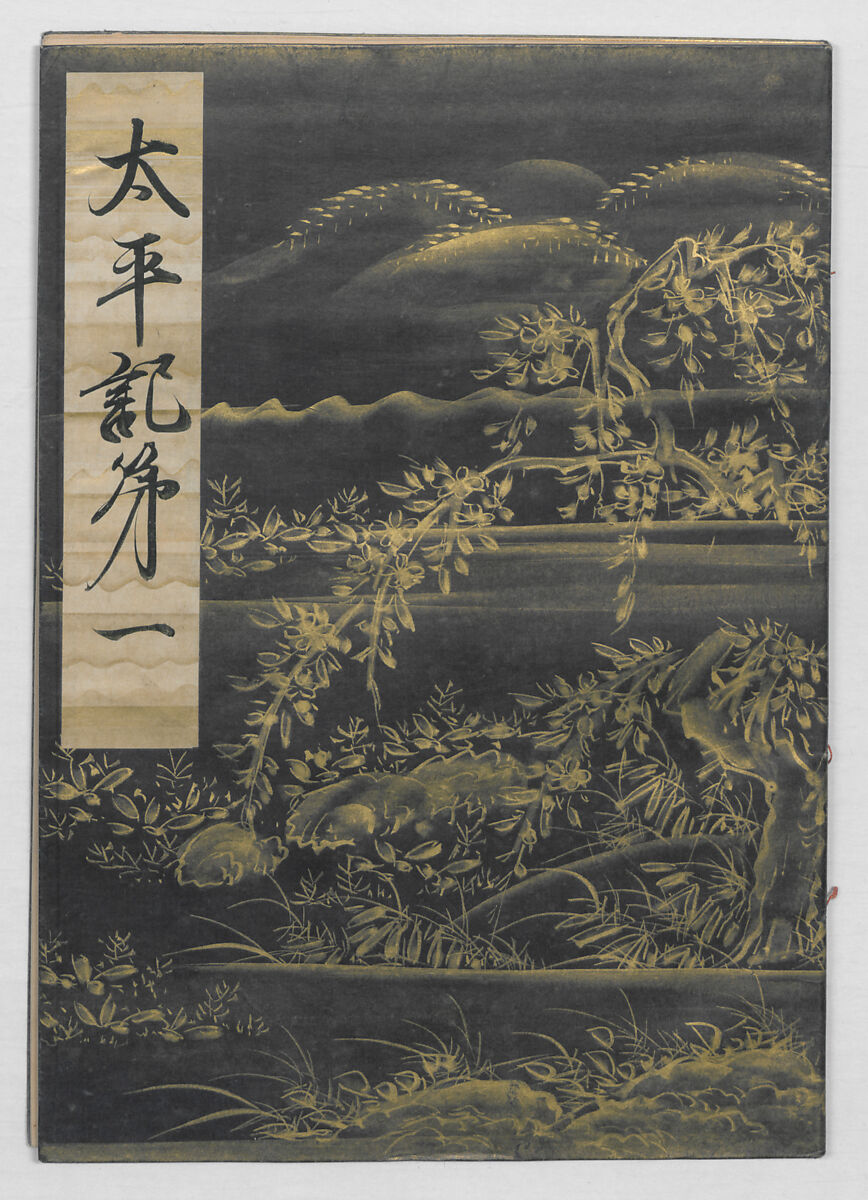 太平記第一